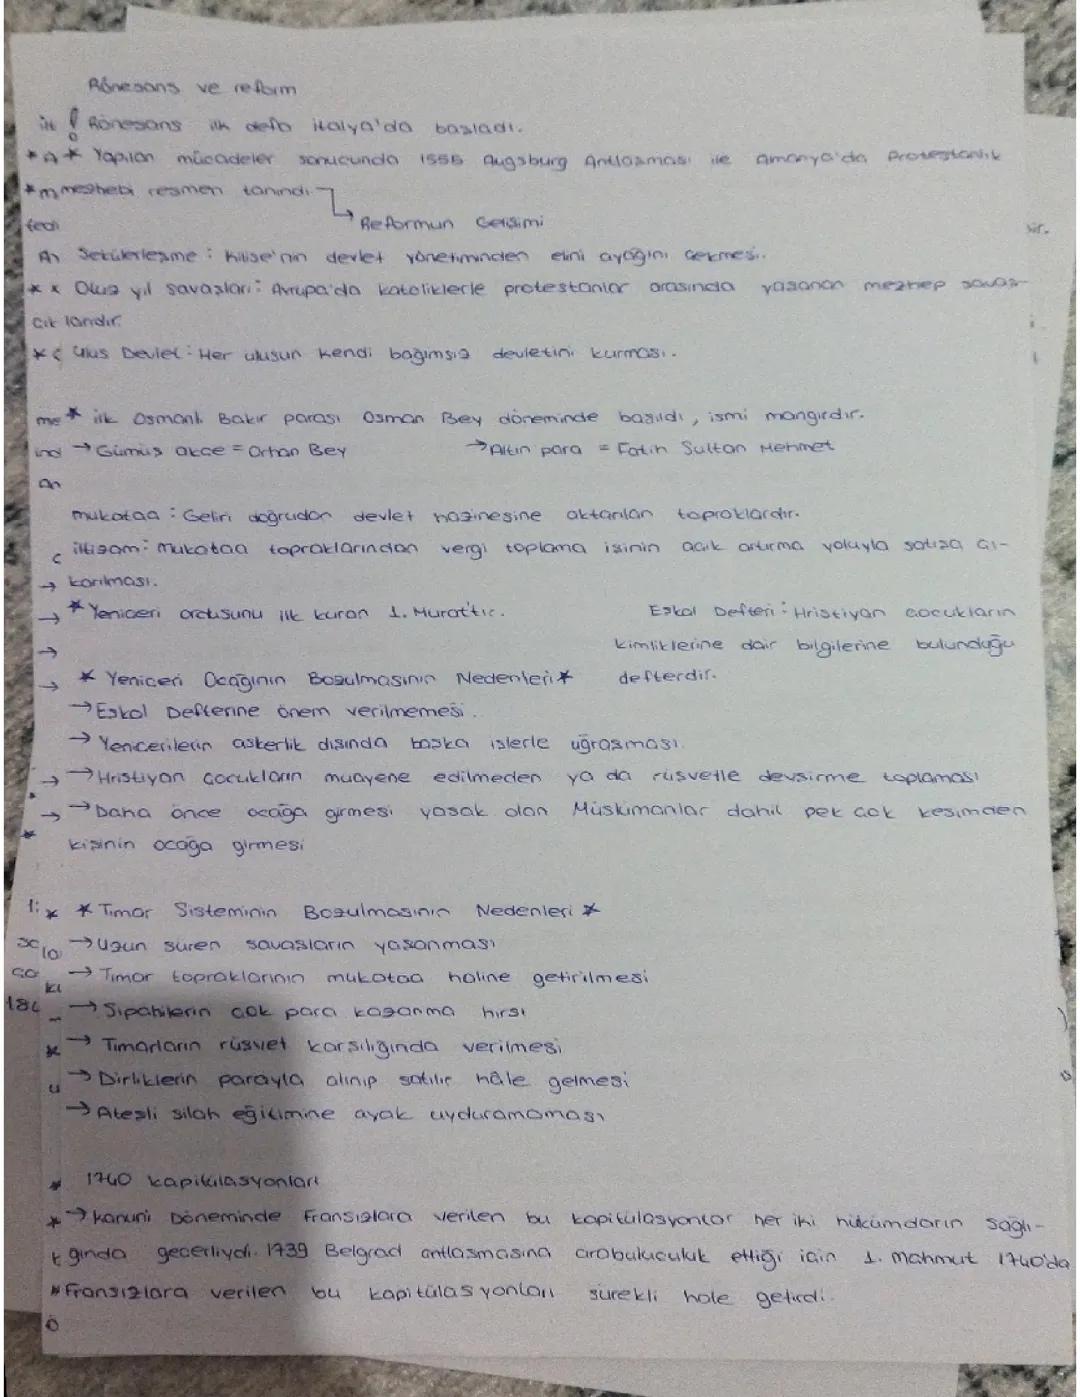 Rönesans ve reform
! Rönesans ilk defa italya'da başladı.
* Yapılan mücadeler sonucunda 1555 Augsburg Antlaşması ile Amanya'da Protestanlık
mezhebi resmen tanındı.
→ Reformun Gelişimi
Sekülerleşme : Kilise'nin devlet yönetiminden elini ayağını çekmesi.
* Otuz yıl savaşları : Avrupa'da katoliklerle protestanlar arasında yaşanan mezhep savaş-
larıdır.
Ulus Devlet : Her ulusun kendi bağımsız devletini kurması.
* ilk Osmanlı Bakır parası Osman Bey döneminde basıldı, ismi mangırdır.
→ Gümüş akçe = Orhan Bey → Altın para = Fatih Sultan Mehmet
mukataa : Geliri doğrudan devlet hazinesine aktarılan topraklardır.
iltizam : Mukataa topraklarından vergi toplama işinin açık artırma yoluyla satışa çı-
karılması.
* Yeniçeri ordusunu ilk kuran 1. Murat'tır.
Eşkal Defteri : Hristiyan çocukların
kimliklerine dair bilgilerine bulunduğu
defterdir.
* Yeniçeri Ocağının Bozulmasının Nedenleri *
→ Eşkal Defterine önem verilmemesi.
→ Yeniçerilerin askerlik dışında başka işlerle uğraşması.
→ Hristiyan çocukların muayene edilmeden ya da rüşvetle devşirme toplaması
→ Daha önce ocağa girmesi yasak olan Müslümanlar dahil pek çok kesimden
kişinin ocağa girmesi
* Tımar Sisteminin Bozulmasının Nedenleri *
→ Uzun süren savaşların yaşanması
→ Tımar topraklarının mukataa haline getirilmesi
→ Sipahilerin çok para kazanma hırsı
→ Tımarların rüşvet karşılığında verilmesi
→ Dirliklerin parayla alınıp satılır hâle gelmesi
→ Ateşli silah eğitimine ayak uyduramaması
1740 kapitülasyonları
→ Kanuni Döneminde Fransızlara verilen bu kapitülasyonlar her iki hükümdarın sağlı-
ğında geçerliydi. 1739 Belgrad antlaşmasına arabuluculuk ettiği için 1. Mahmut 1740'da
Fransızlara verilen bu kapitülasyonları sürekli hale getirdi.